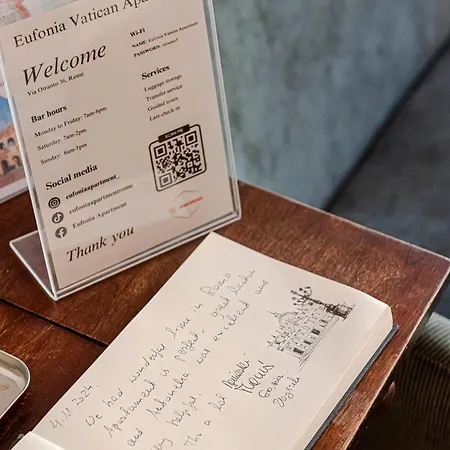 Eufonia Vatican Apa
Welcome
Via Otranto 36, Rome
Wi-Fi
NAME: Eufonia Vatican Apartment
PASSWORD:
Bar hours
Monday to Friday: 7am-6pm
Saturday: 7am-2pm
Sunday: 8am-1pm
Services
Luggage storage
Transfer service
Guided tours
Late check-in
SCAN ME
Social media
eufoniaapartment_
eufoniaapartmentrome
Eufonia Apartment
Thank you
4.11.2024.
We had wonderful time in Roma
Apartment is perfect, great location
and Antonella was excellent and
very helpful.
Thx a lot